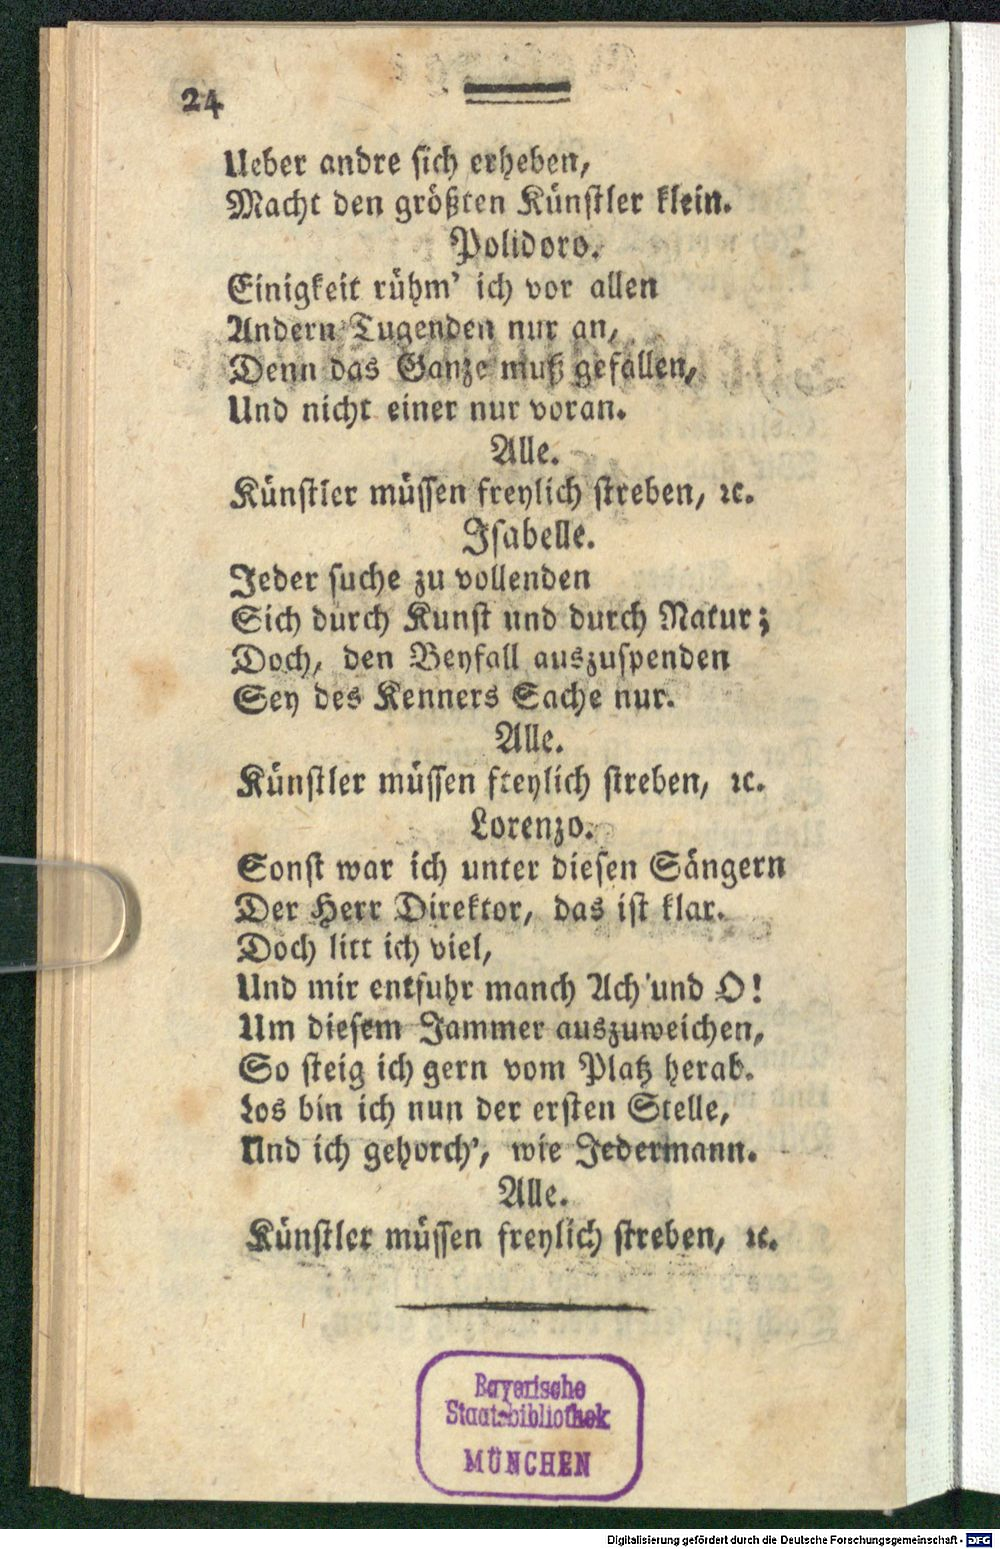 24
Ueber andre sich erheben,
Macht den größten Künstler klein.
Polidoro.
Einigkeit rühm' ich vor allen
Andern Tugenden nur an,
Denn das Ganze muß gefallen,
Und nicht einer nur voran.
Alle.
Künstler müssen freylich streben, ꝛc.
Isabelle.
Jeder suche zu vollenden
Sich durch Kunst und durch Natur;
Doch, den Beyfall auszuspenden
Sey des Kenners Sache nur.
Alle.
Künstler müssen freylich streben, ꝛc.
Lorenzo.
Sonst war ich unter diesen Sängern
Der Herr Direktor, das ist klar.
Doch litt ich viel,
Und mir entfuhr manch Ach und O!
Um diesem Jammer auszuweichen,
So steig ich gern vom Platz herab.
Los bin ich nun der ersten Stelle,
Und ich gehorch', wie Jedermann.
Alle.
Künstler müssen freylich streben, ꝛc.
Bayerische
Staatsbibliothek
MÜNCHEN
Digitalisierung gefördert durch die Deutsche Forschungsgemeinschaft - DFG